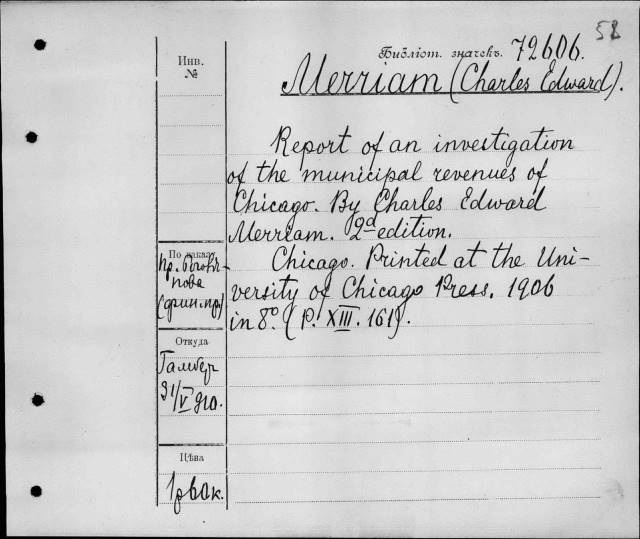 52
Библіот. значекъ. 72606.
Merriam (Charles Edward).
Инв.
№
Report of an investigation
of the municipal revenues of
Chicago. By Charles Edward
Merriam. 2d edition.
Chicago. Printed at the Uni-
versity of Chicago Press. 1906
in 8°. (P. XIII. 161).
По заказу
пр.
пова
Откуда
31/V 910.
Цѣна
1р 60к.